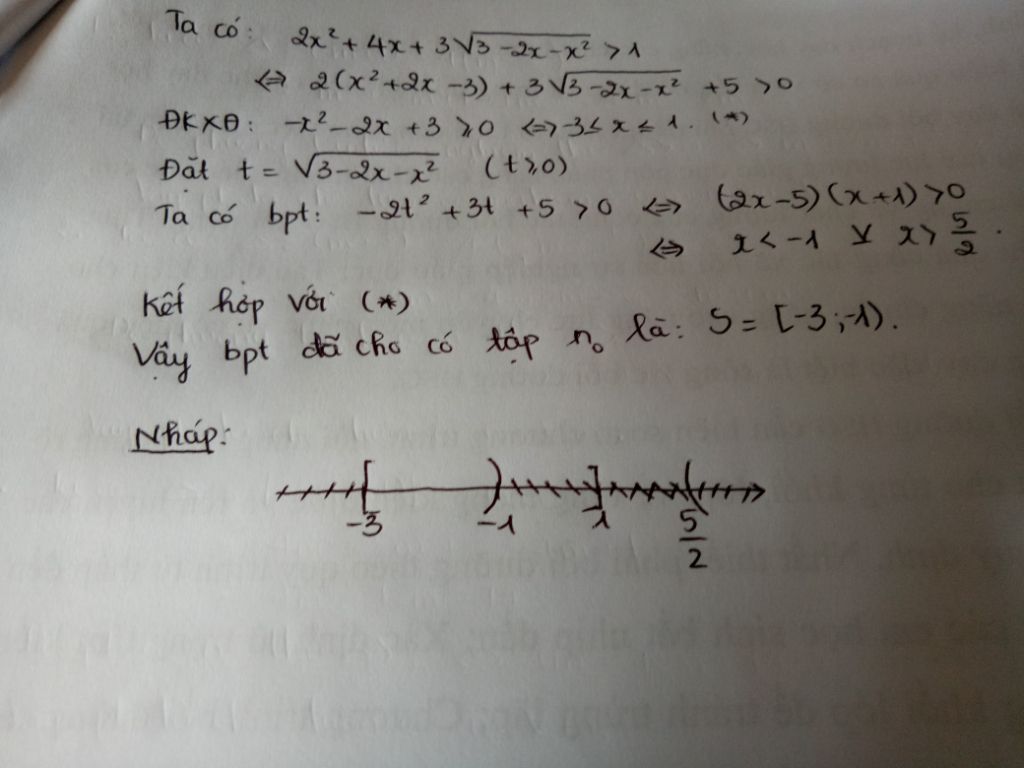 Ta có: 2x² + 4x + 3√(3 - 2x - x²) > 1
⇔ 2(x² + 2x - 3) + 3√(3 - 2x - x²) + 5 > 0
ĐKXĐ: -x² - 2x + 3 ≥ 0 ⇔ -3 ≤ x ≤ 1. (*)
Đặt t = √(3 - 2x - x²) (t ≥ 0)
Ta có bpt: -2t² + 3t + 5 > 0 ⇔ (2x - 5)(x + 1) > 0
⇔ x < -1 ∨ x > 5/2.
Kết hợp với (*)
Vậy bpt đã cho có tập n₀ là: S = [-3; -1).
Nháp:
-3 -1 1 5/2